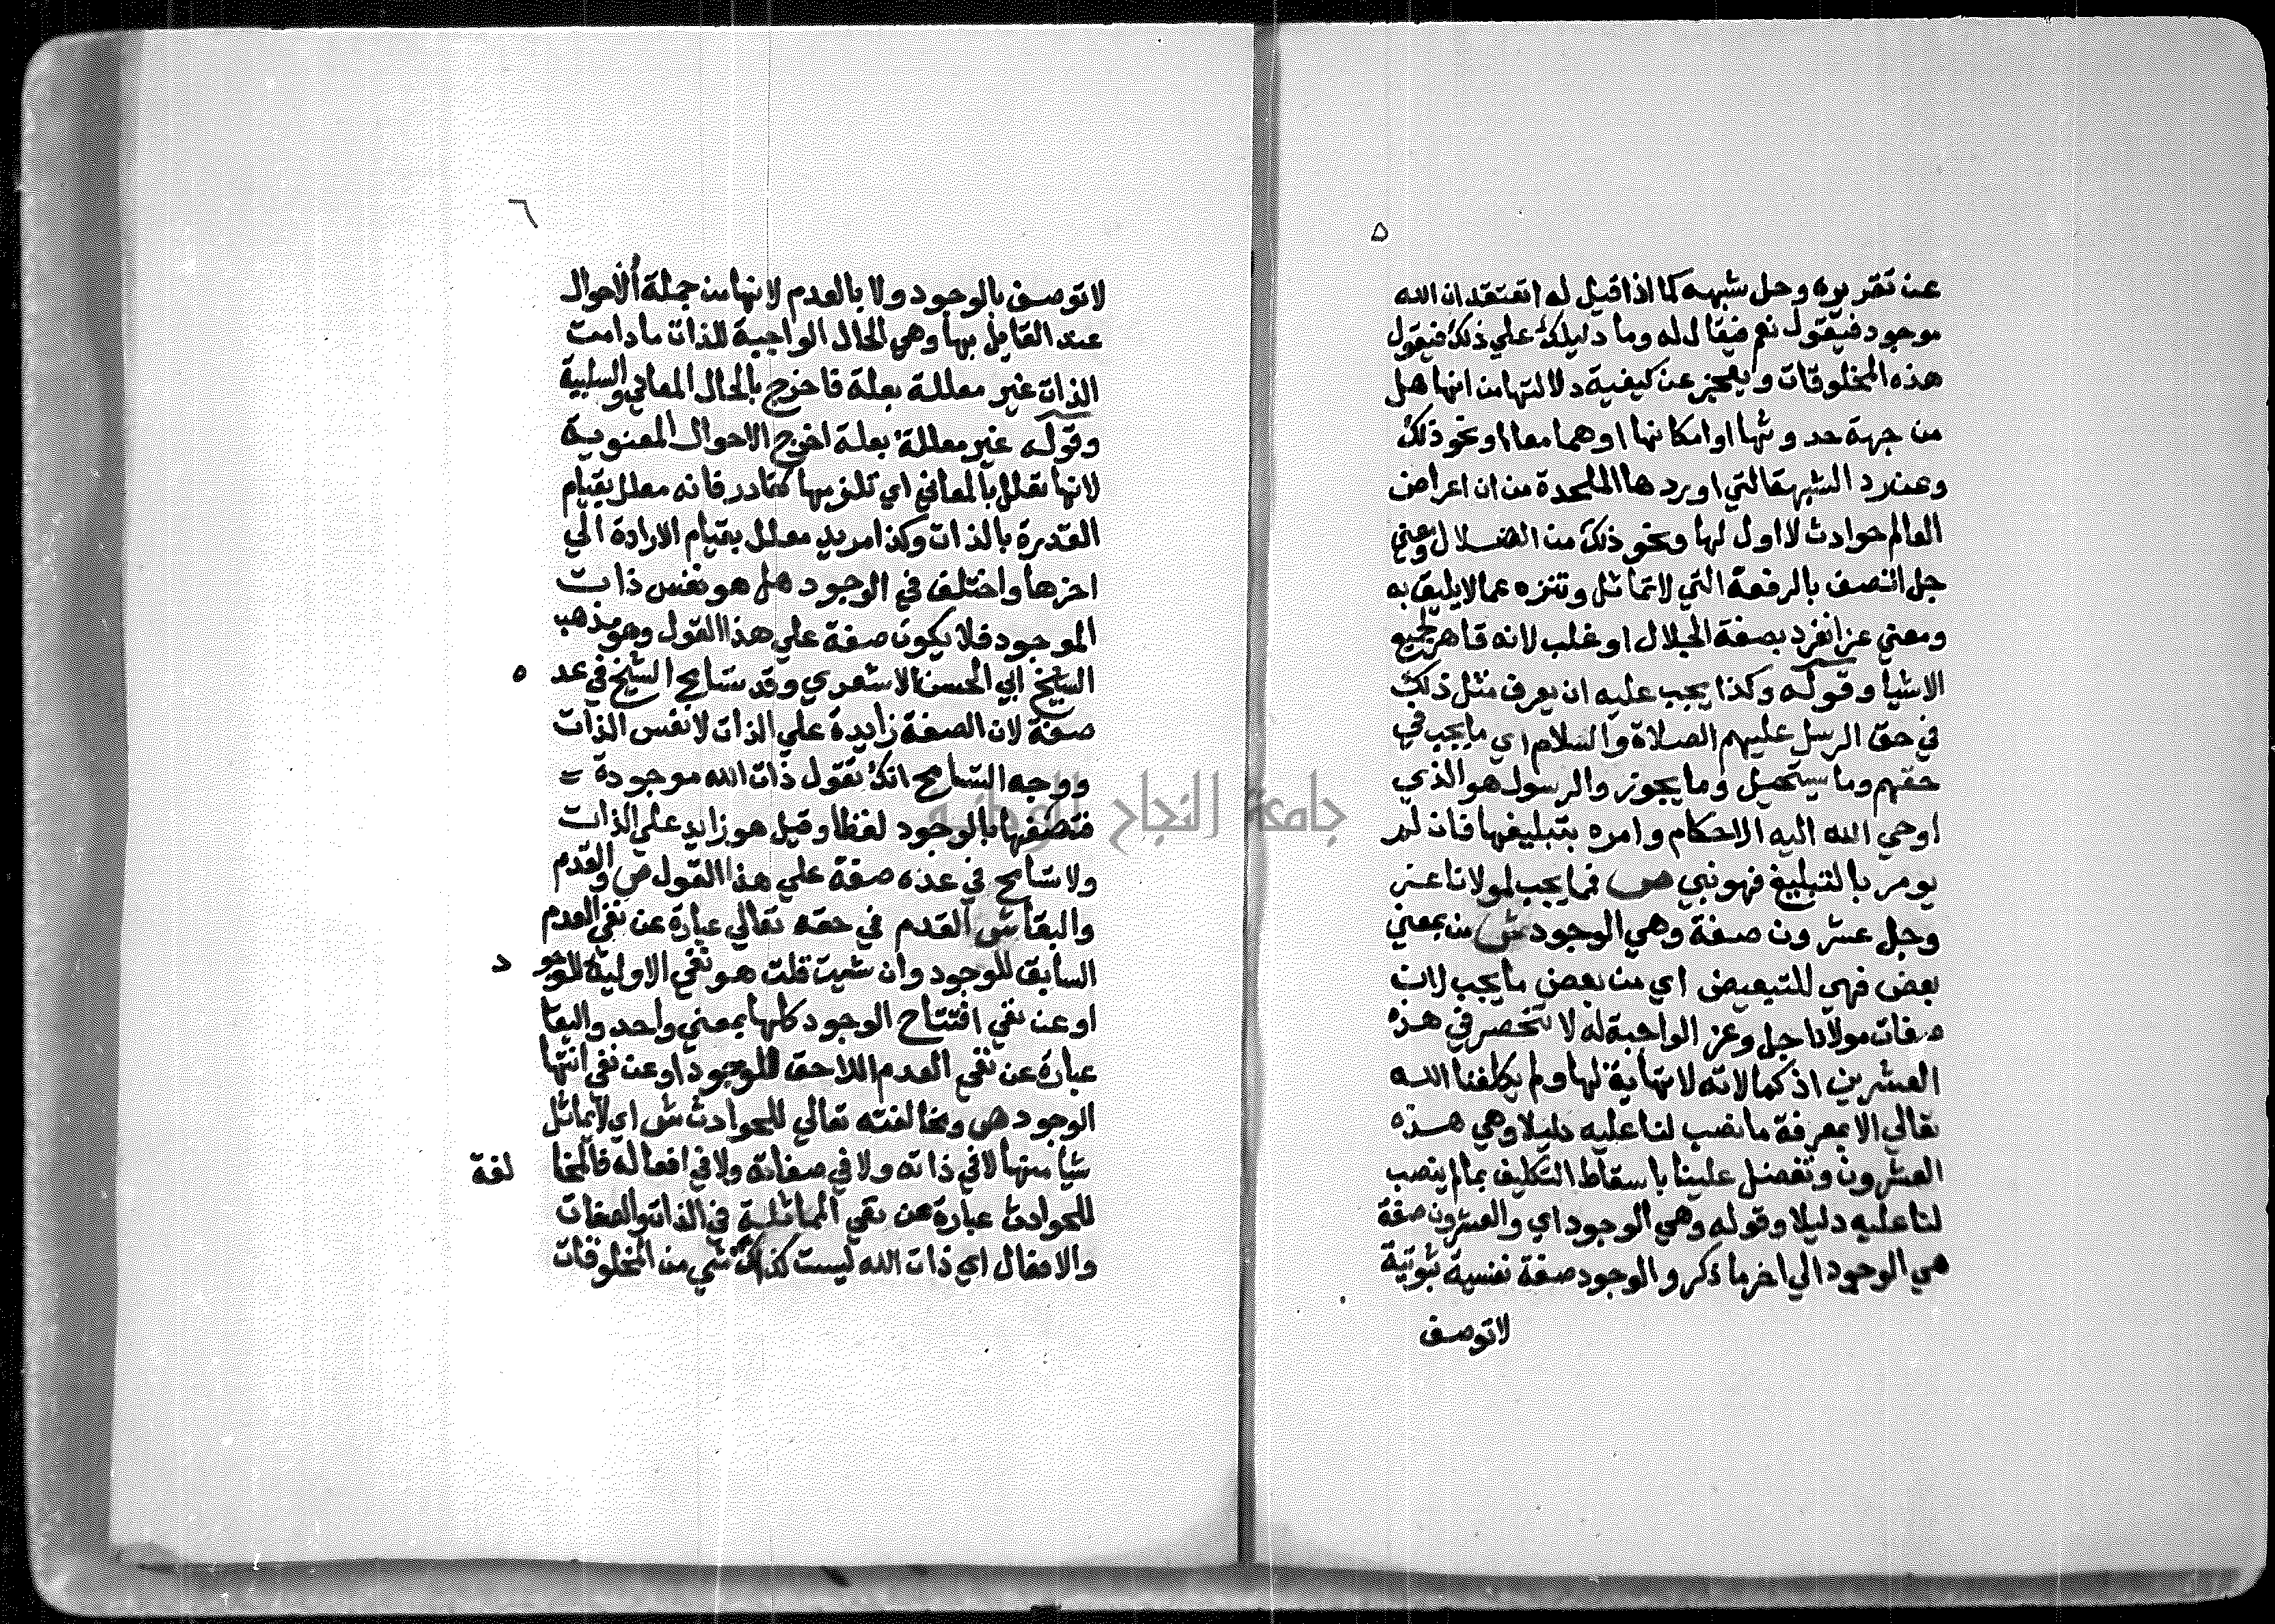 ٥
عن تقريره وحل شبهه كما اذا قيل له اتعتقد ان الله
موجود فيقول نعم فيقال له وما دليلك علي ذلك فيقول
هذه المخلوقات ويعجز عن كيفية دلالتها من انها هل
من جهة حدوثها او امكانها او هما معا او نحو ذلك
وعن رد الشبهة التي اوردها الملحدة من ان اعراض
العالم حوادث لا اول لها ونحو ذلك من الضلال ومعني
جل اتصف بالرفعة التي لا تماثل وتنزه عما لا يليق به
ومعني عز انفرد بصفة الجلال او غلب لانه قاهر لجميع
الاشيا وقوله وكذا يجب عليه ان يعرف مثل ذلك
في حق الرسل عليهم الصلاة والسلام اي ما يجب في
حقهم وما يستحيل وما يجوز والرسول هو الذي
اوحي الله اليه الاحكام وامره بتبليغها فان لم
يومر بالتبليغ فهو نبي ص فما يجب لمولانا عز
وجل عشرون صفة وهي الوجود ش من بمعني
بعض فهي للتبعيض اي من بعض ما يجب لان
صفات مولانا جل وعز الواجبة له لا تنحصر في هذه
العشرين اذ كمالاته لا نهاية لها ولم يكلفنا الله
تعالي الا بمعرفة ما نصب لنا عليه دليلا وهي هذه
العشرون وتفضل علينا باسقاط التكليف بما لم ينصب
لنا عليه دليلا وقوله وهي الوجود اي والعشرون صفة
هي الوجود الي اخر ما ذكر والوجود صفة نفسية ثبوتية
لا توصف
٦
لا توصف بالوجود ولا بالعدم لانها من جملة الاحوال
عند القايل بها وهي الحال الواجبة للذات ما دامت
الذات غير معللة بعلة فاخرج بالحال المعاني والسلبية
وقوله غير معللة بعلة اخرج الاحوال المعنوية
لانها تعلل بالمعاني اي تلزمها كقادر فانه معلل بقيام
القدرة بالذات وكذا مريد معلل بقيام الارادة الي
اخرها واختلف في الوجود هل هو نفس ذات
الموجود فلا يكون صفة علي هذا القول وهو مذهب
الشيخ ابي الحسن الاشعري وقد تسامح الشيخ في عده
صفة لان الصفة زايدة علي الذات لا نفس الذات
ووجه التسامح انك تقول ذات الله موجودة
فتصفها بالوجود لفظا وقيل هو زايد علي الذات
ولا تسامح في عده صفة علي هذا القول ص والقدم
والبقا ش القدم في حقه تعالي عبارة عن نفي العدم
السابق للوجود وان شيت قلت هو نفي الاولية للوجود
او عن نفي افتتاح الوجود كلها بمعني واحد والبقا
عبارة عن نفي العدم اللاحق للوجود او عن نفي انتها
الوجود ص ومخالفته تعالي للحوادث ش اي لا يماثل
شيا منها لا في ذاته ولا في صفاته ولا في افعاله فالمخالفة
للحوادث عبارة عن نفي المماثلة في الذات والصفات
والافعال اي ذات الله ليست كذات شي من المخلوقات
جامعة النجاح الوطنية